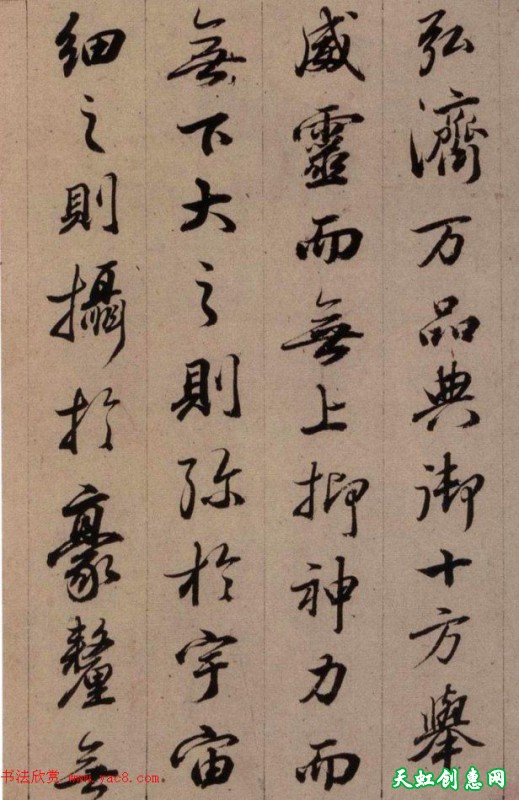 弘濟万品典御十方舉
威靈而無上抑神力而
無下大之則弥於宇宙
細之則攝於豪釐無
书法欣赏 www.yac8.com
天虹创惠网